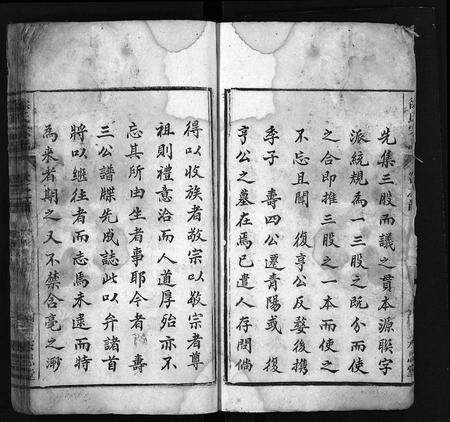 先集三股而議之貫本源聯字
派統規為一三股之既分而使
之合即推三股之一本而使之
不忘且聞　復亨公反發後攜
季子　壽四公遷青陽或　復
亨公之墓在焉已遣人存問倘
得以收族者敬宗以敬宗者尊
祖則禮意洽而人道厚殆亦不
忘其所由生者事耶今者　壽
三公譜牒先成誌此以弁諸首
將以繼往者而志焉未逮而特
為來者期之又不禁含毫之渺